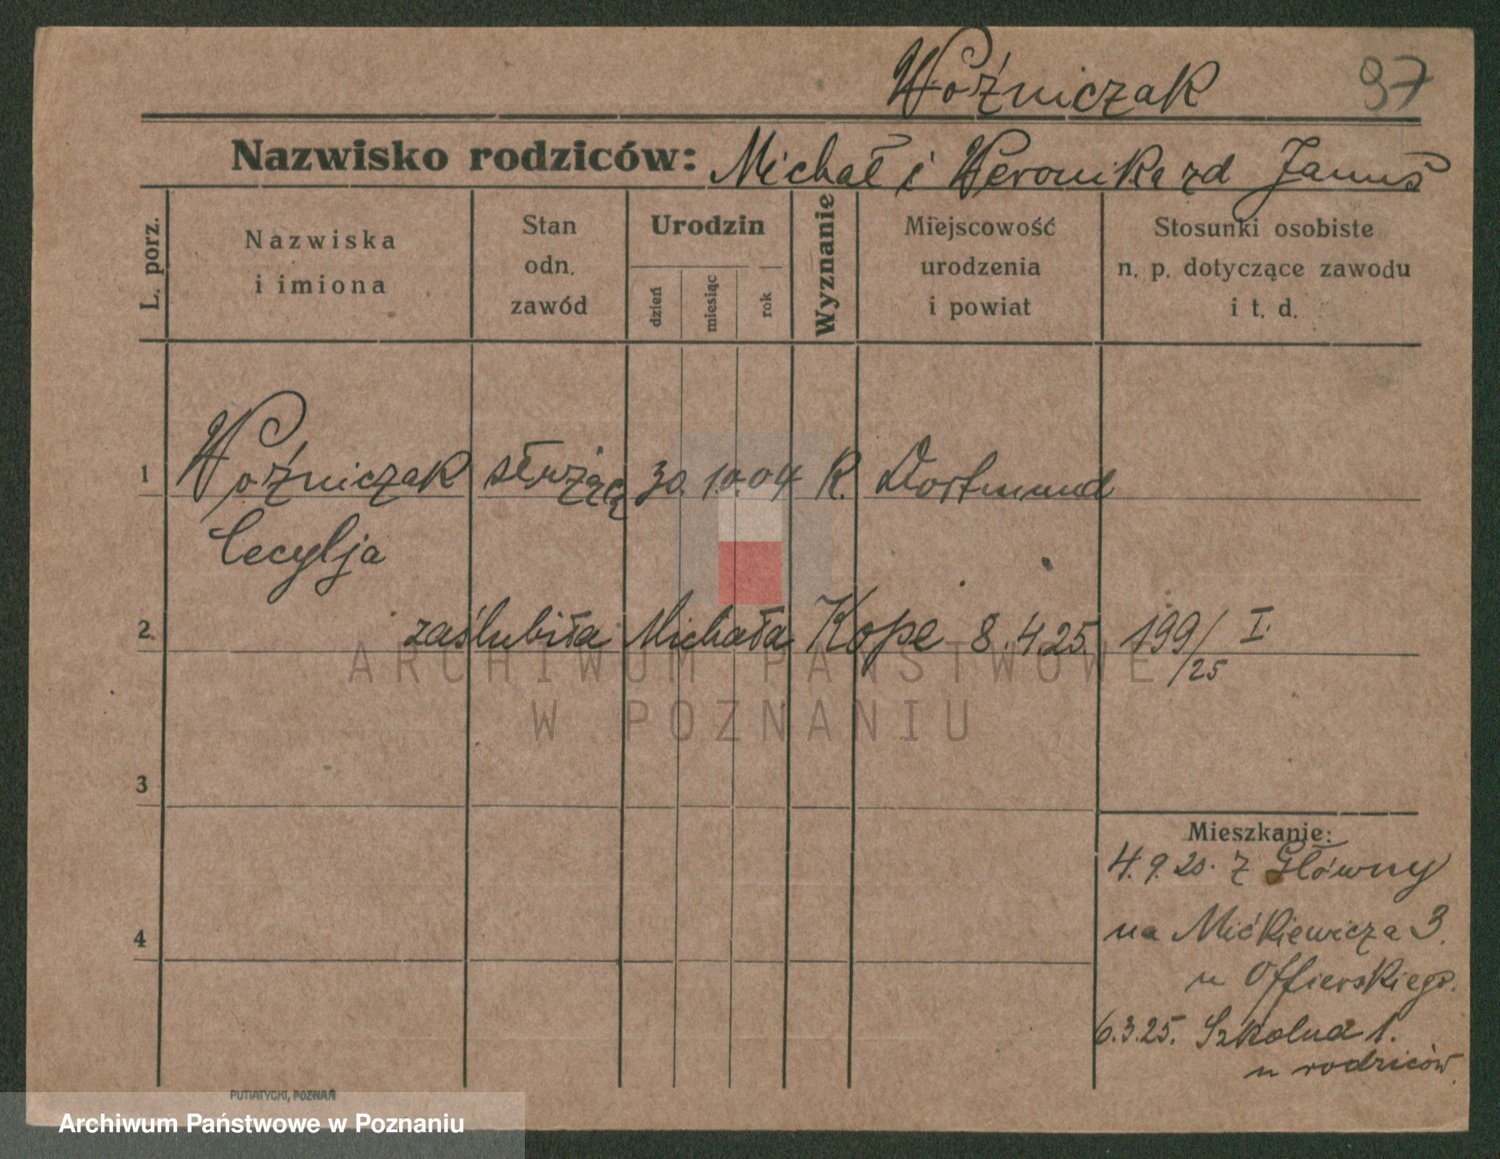 Woźniczak 97
Nazwisko rodziców: Michał i Weronika zd Januś
L. porz.
Nazwiska
i imiona
Stan
odn.
zawód
Urodzin
dzień
miesiąc
rok
Wyznanie
Miejscowość
urodzenia
i powiat
Stosunki osobiste
n. p. dotyczące zawodu
i t. d.
1 Woźniczak służąca 30. 10. 04 R. Dortmund
Cecylja
2. zaślubiła Michała Kope 8. 4. 25. 199/25 I.
3
Mieszkanie:
4. 9. 20. z Główny
na Mićkiewicza 3.
4
u Offierskiego.
6.3.25. Szkolna 1.
u rodziców.
PUTIATYCKI, POZNAŃ
ARCHIWUM PAŃSTWOWE
W POZNANIU
Archiwum Państwowe w Poznaniu